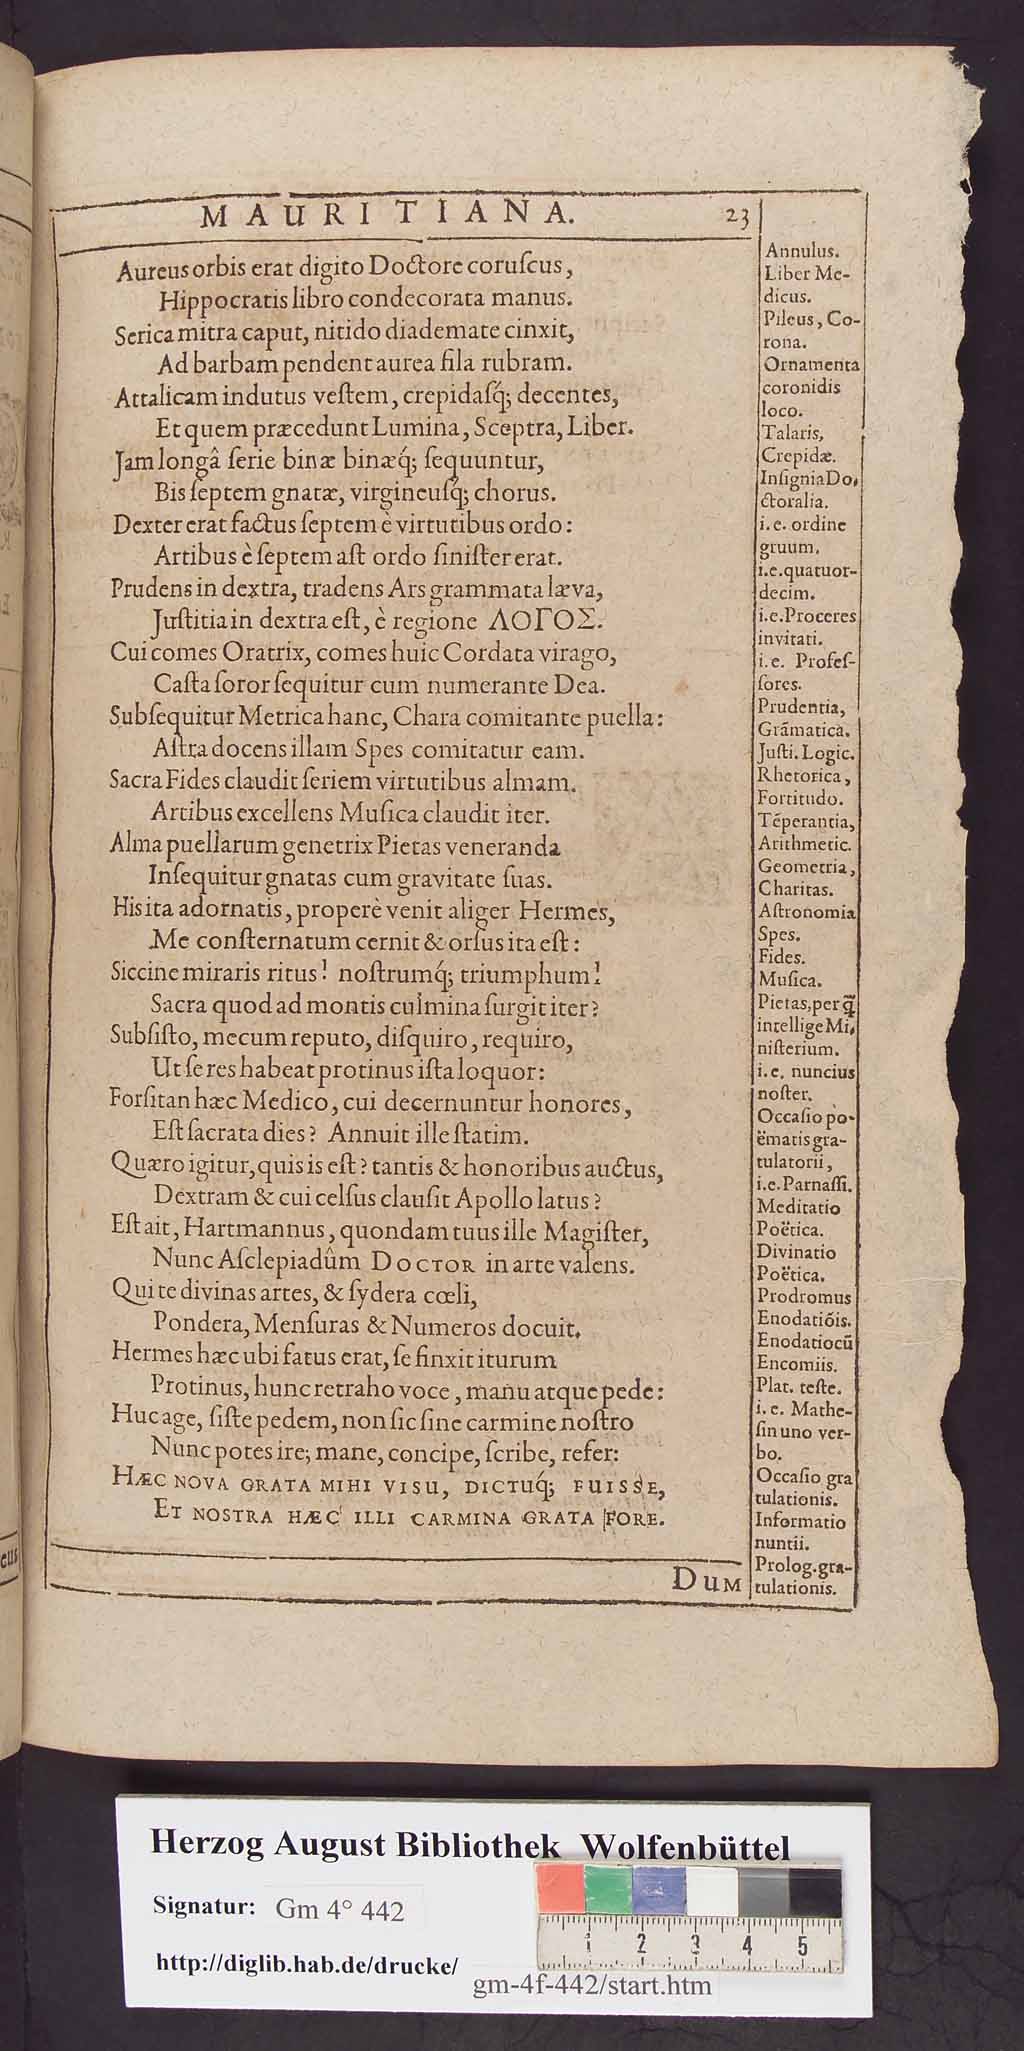 MAURITIANA. 23
Aureus orbis erat digito Doctore coruſcus,
Hippocratis libro condecorata manus.
Serica mitra caput, nitido diademate cinxit,
Ad barbam pendent aurea fila rubram.
Attalicam indutus veſtem, crepidaſq́; decentes,
Et quem præcedunt Lumina, Sceptra, Liber.
Jam longâ ſerie binæ binæq́; ſequuntur,
Bis ſeptem gnatæ, virgineuſq́; chorus.
Dexter erat factus ſeptem è virtutibus ordo:
Artibus è ſeptem aſt ordo ſiniſter erat.
Prudens in dextra, tradens Ars grammata læva,
Juſtitia in dextra eſt, è regione ΛΟΓΟΣ.
Cui comes Oratrix, comes huic Cordata virago,
Caſta ſoror ſequitur cum numerante Dea.
Subſequitur Metrica hanc, Chara comitante puella:
Aſtra docens illam Spes comitatur eam.
Sacra Fides claudit ſeriem virtutibus almam.
Artibus excellens Muſica claudit iter.
Alma puellarum genetrix Pietas veneranda
Inſequitur gnatas cum gravitate ſuas.
His ita adornatis, properè venit aliger Hermes,
Me conſternatum cernit & orſus ita eſt:
Siccine miraris ritus! noſtrumq́; triumphum!
Sacra quod ad montis culmina ſurgit iter?
Subſiſto, mecum reputo, diſquiro, requiro,
Ut ſe res habeat protinus iſta loquor:
Forſitan hæc Medico, cui decernuntur honores,
Eſt ſacrata dies? Annuit ille ſtatim.
Quæro igitur, quis is eſt? tantis & honoribus auctus,
Dextram & cui celſus clauſit Apollo latus?
Eſt ait, Hartmannus, quondam tuus ille Magiſter,
Nunc Aſclepiadûm DOCTOR in arte valens.
Qui te divinas artes, & ſydera cœli,
Pondera, Menſuras & Numeros docuit.
Hermes hæc ubi fatus erat, ſe finxit iturum
Protinus, hunc retraho voce, manu atque pede:
Huc age, ſiſte pedem, non ſic ſine carmine noſtro
Nunc potes ire; mane, concipe, ſcribe, refer:
HÆC NOVA GRATA MIHI VISU, DICTUq́; FUISSE,
ET NOSTRA HÆC ILLI CARMINA GRATA FORE.
DUM
Annulus.
Liber Me-
dicus.
Pileus, Co-
rona.
Ornamenta
coronidis
loco.
Talaris,
Crepidæ.
Inſignia Do,
ctoralia.
i.e. ordine
gruum.
i.e. quatuor-
decim.
i.e. Proceres
invitati.
i.e. Profeſ-
ſores.
Prudentia,
Grãmatica.
Juſti. Logic.
Rhetorica,
Fortitudo.
Tẽperantia,
Arithmetic.
Geometria,
Charitas.
Aſtronomia
Spes.
Fides.
Muſica.
Pietas, per q̃
intellige Mi,
niſterium.
i.e. nuncius
noſter.
Occaſio po-
ëmatis gra-
tulatorii,
i.e. Parnaſſi.
Meditatio
Poëtica.
Divinatio
Poëtica.
Prodromus
Enodatiõis.
Enodatio cũ
Encomiis.
Plat. teſte.
i.e. Mathe-
ſin uno ver-
bo.
Occaſio gra
tulationis.
Informatio
nuntii.
Prolog. gra-
tulationis.
Herzog August Bibliothek Wolfenbüttel
Signatur: Gm 4° 442
http://diglib.hab.de/drucke/
gm-4f-442/start.htm
1 2 3 4 5